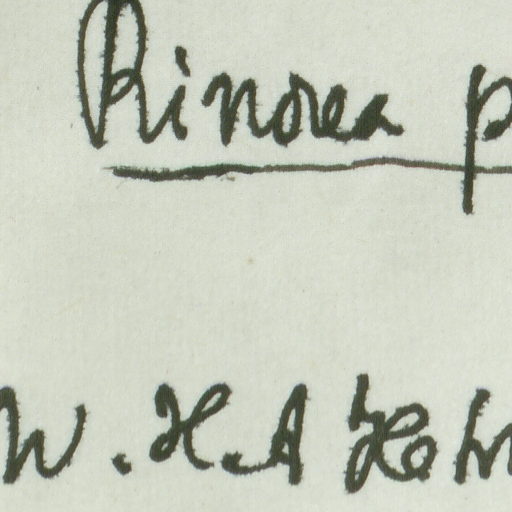 Rinorea p
W.H.A Hek